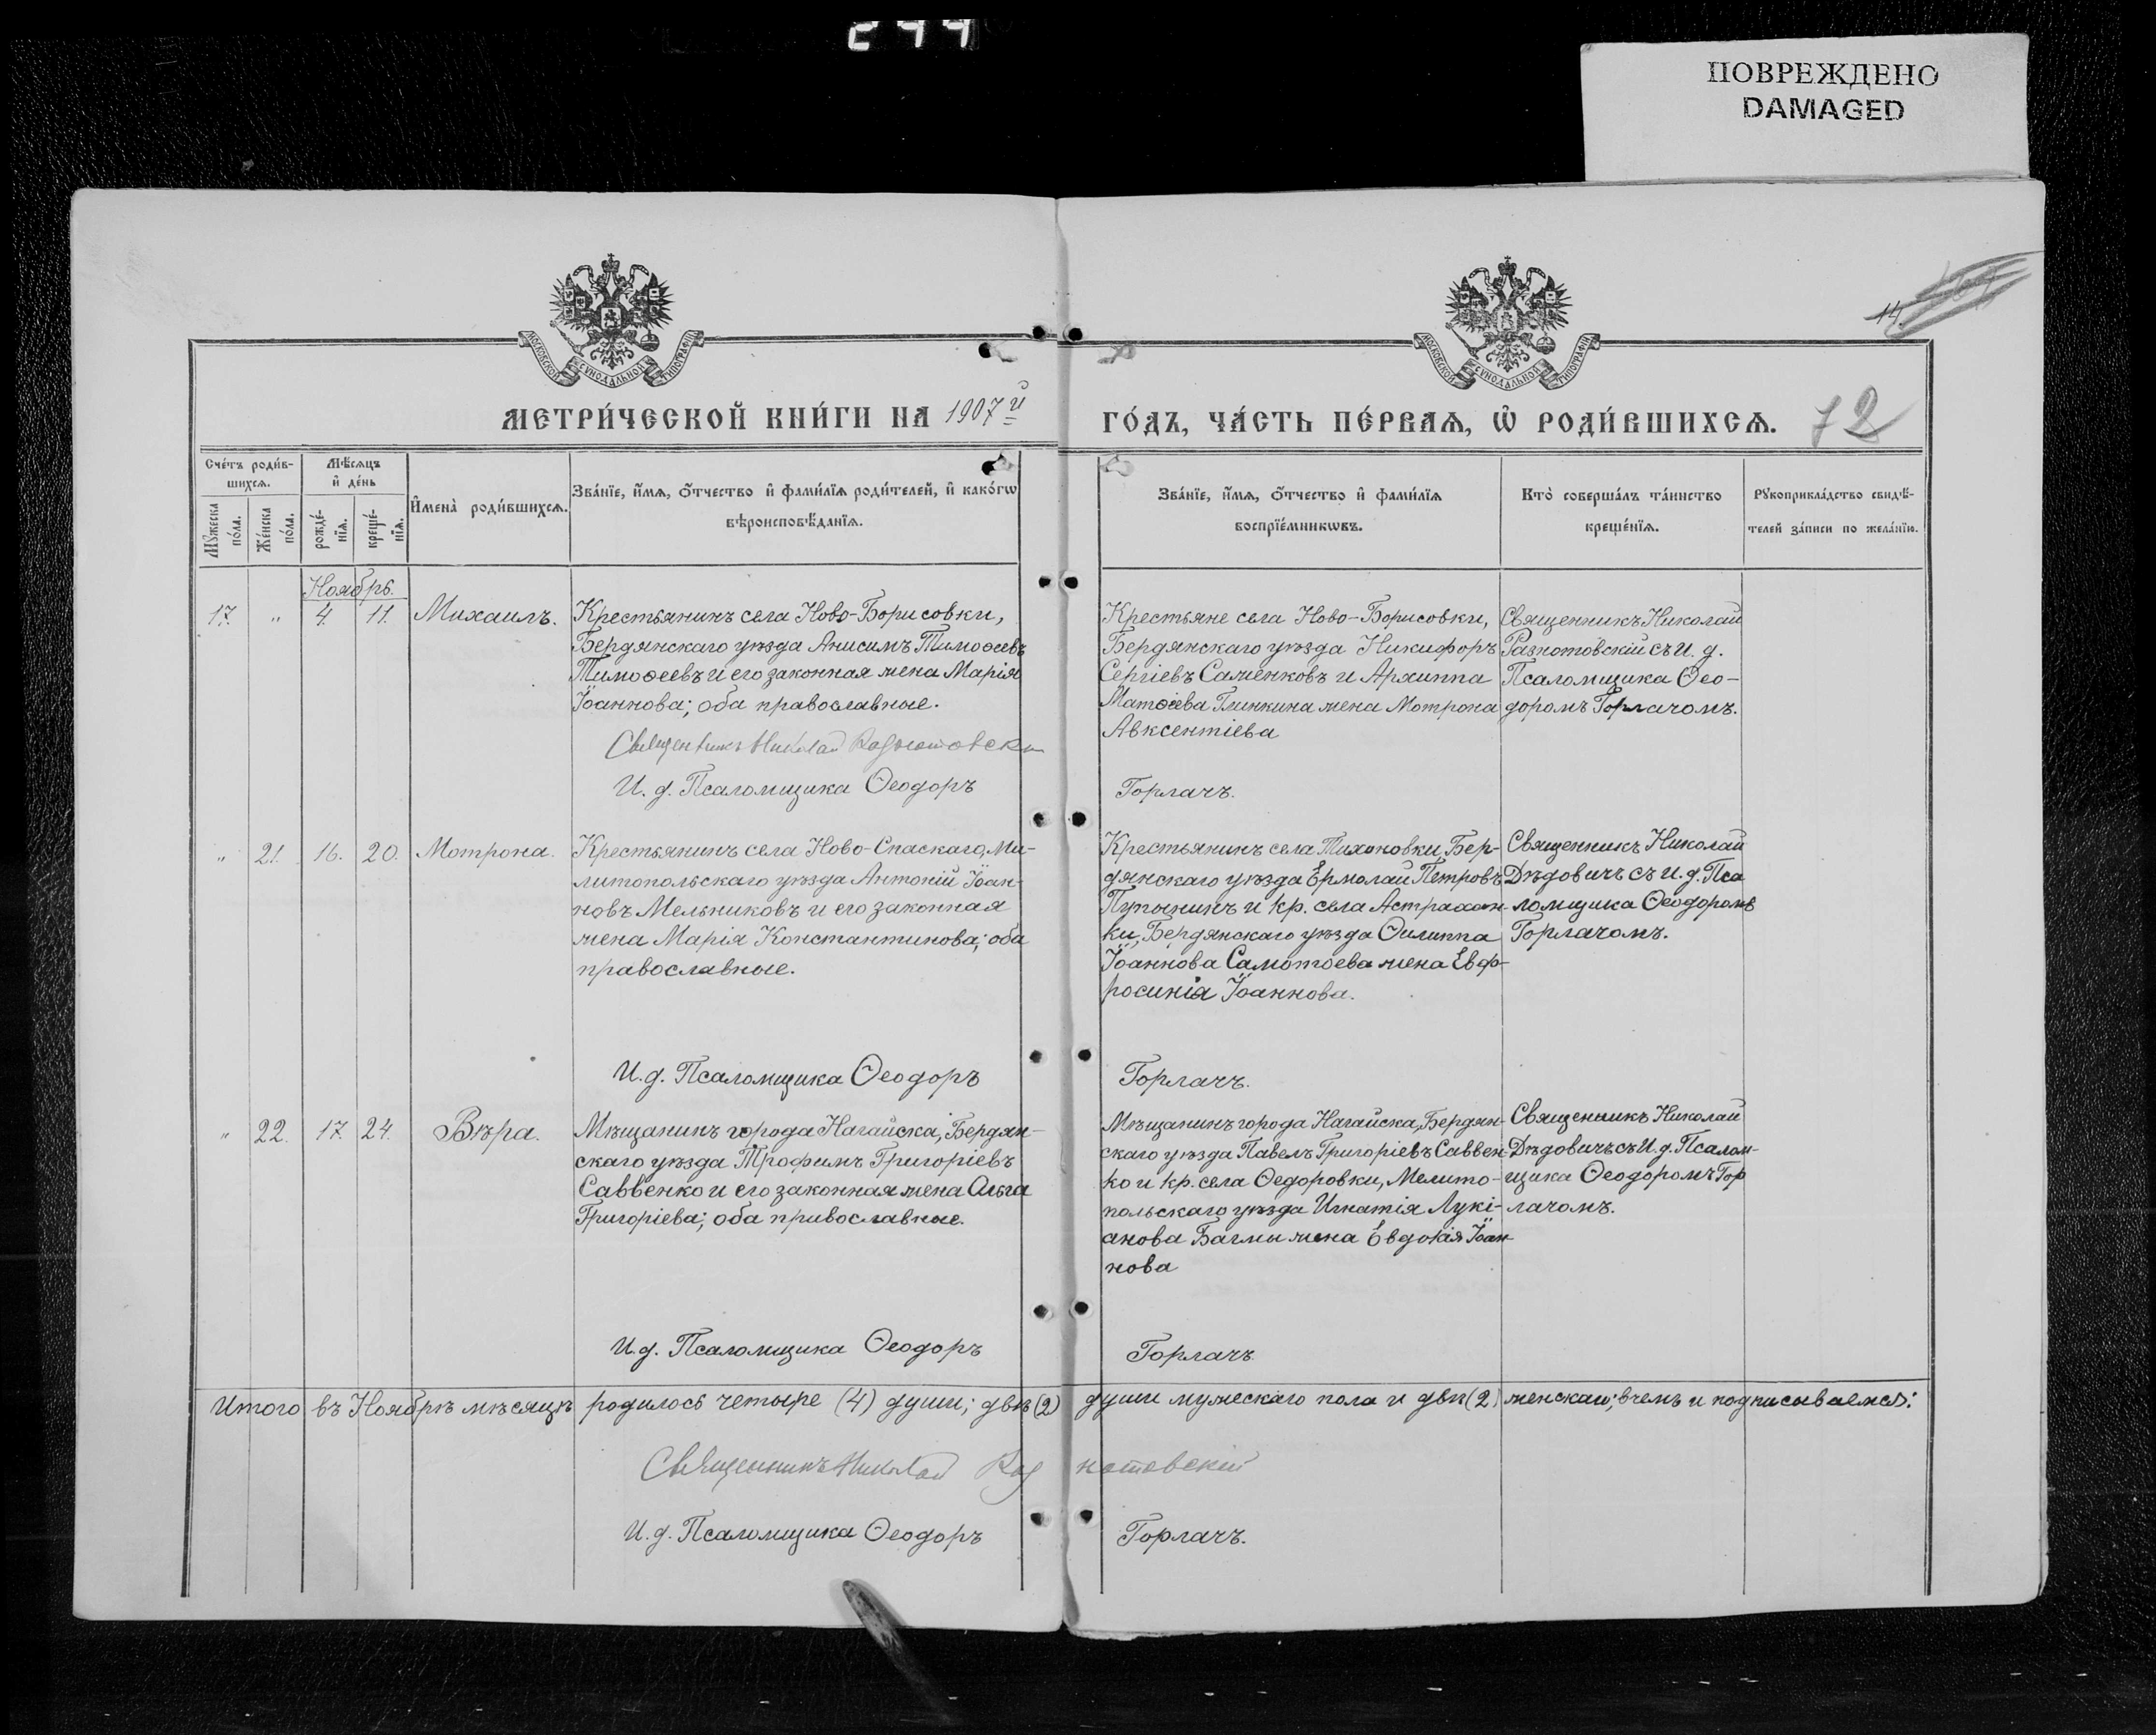 ПОВРЕЖДЕНО
DAMAGED
МОСКОВСКОЙ СѴНОДАЛЬНОЙ ТИПОГРАФІИ
МОСКОВСКОЙ СѴНОДАЛЬНОЙ ТИПОГРАФІИ
14.
МЕТРИ́ЧЕСКОЙ КНИ́ГИ НА 1907й
ГО́ДЪ, ЧА́СТЬ ПЕ́РВАѦ, Ѡ҆ РОДИ́ВШИХСѦ. 72
Сче́тъ роди́в-
шихсѧ.
Мѣ́сѧцъ
и҆ де́нь
Мꙋ́жеска
по́ла.
Же́нска
по́ла.
рожде́-
нїѧ.
креще́-
нїѧ.
И҆мена̀ роди́вшихсѧ.
Зва́нїе, и҆́мѧ, ѻ҆́тчество и҆ фами́лїѧ роди́телей, и҆ како́гѡ
вѣроисповѣ́данїѧ.
Зва́нїе, и҆́мѧ, ѻ҆́тчество и҆ фами́лїѧ
воспрїе́мникѡвъ.
Кто̀ соверша́лъ та́инство
креще́нїѧ.
Рꙋкоприкла́дство свидѣ́-
телей за́писи по жела́нїю.
Ноябрь.
17. " 4. 11. Михаилъ.
Крестьянинъ села Ново-Борисовки,
Бердянскаго уѣзда Анисимъ Тимоѳеевъ
Тимоѳеевъ и его законная жена Марія
Іоаннова; оба православные.
Священникъ Николай Разнотовскій
И. д. Псаломщика Ѳеодоръ
Крестьяне села Ново-Борисовки,
Бердянскаго уѣзда Никифоръ
Сергіевъ Саженковъ и Архиппа
Матѳіева Глинкина жена Мотрона
Авксентіева
Горлачъ.
Священникъ Николай
Разнотовскій съ И. д.
Псаломщика Ѳео-
доромъ Горлачомъ.
" 21. 16. 20. Мотрона.
Крестьянинъ села Ново-Спаскаго, Ми-
литопольскаго уѣзда Антоній Іоан-
новъ Мельниковъ и его законная
жена Марія Константинова; оба
православные.
И. д. Псаломщика Ѳеодоръ
Крестьянинъ села Тихоновки, Бер-
дянскаго уѣзда Ермолай Петровъ
Пупынинъ и кр. села Астрахан-
ки, Бердянскаго уѣзда Филиппа
Іоаннова Самотоева жена Евф-
росинія Іоаннова.
Горлачъ.
Священникъ Николай
Дѣдовичъ съ И. д. Пса
ломщика Ѳеодоромъ
Горлачомъ.
" 22. 17. 24. Вѣра.
Мѣщанинъ города Нагайска, Бердян-
скаго уѣзда Трофимъ Григоріевъ
Саввенко и его законная жена Ольга
Григоріева; оба православные.
И. д. Псаломщика Ѳеодоръ
Мѣщанинъ города Нагайска, Бердян-
скаго уѣзда Павелъ Григоріевъ Саввен-
ко и кр. села Ѳедоровки, Мелито-
польскаго уѣзда Игнатія Лукі-
анова Багмы жена Евдокія Іоан-
нова
Горлачъ
Священникъ Николай
Дѣдовичъ съ И. д. Псалом-
щика Ѳеодоромъ Гор
лачомъ.
Итого въ Ноябрѣ мѣсяцѣ родилось четыре (4) души; двѣ (2) души мужескаго пола и двѣ (2) женскаго; в чемъ и подписываемся:
Священникъ Николай Разнотовскій
И. д. Псаломщика Ѳеодоръ Горлачъ.